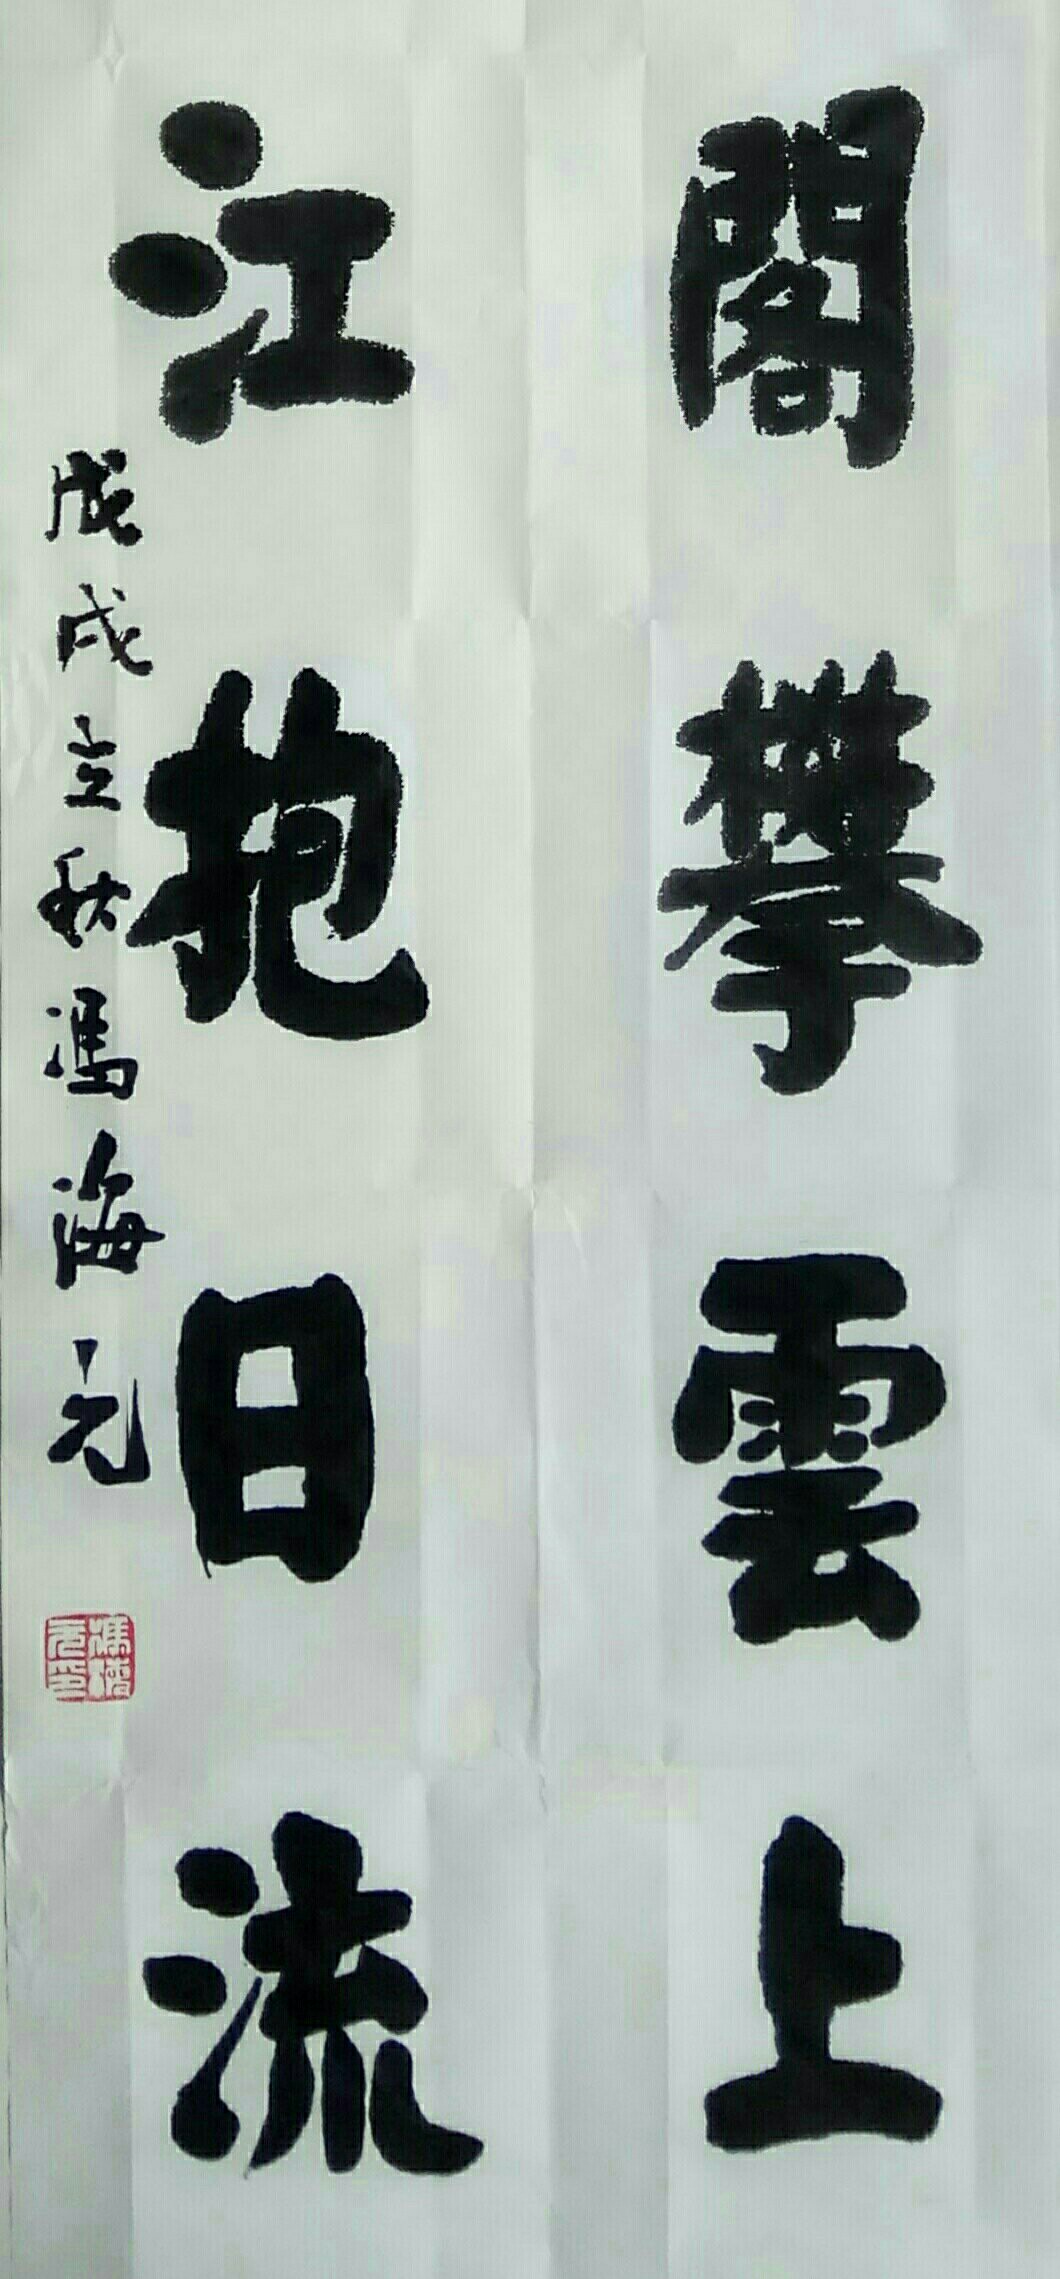 閣攀雲上
江抱日流
戊戌立秋馮海元
馮海元印